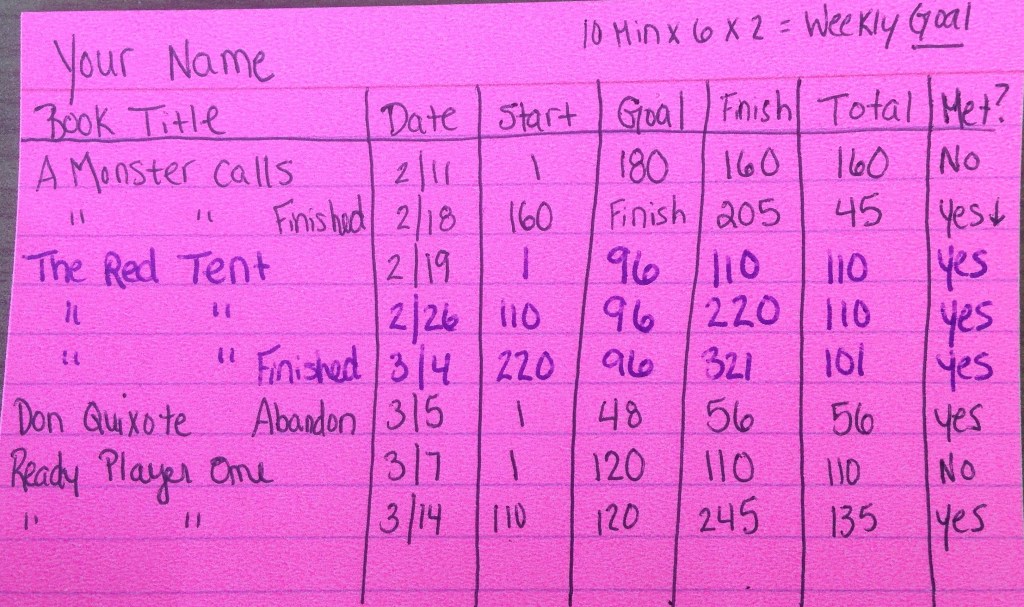 10 Min x 6 x 2 = Weekly Goal
Your Name
Book Title Date Start Goal Finish Total Met?
A Monster Calls 2/11 1 180 160 160 No
" " Finished 2/18 160 Finish 205 45 yes↓
The Red Tent 2/19 1 96 110 110 yes
" " 2/26 110 96 220 110 yes
" " Finished 3/4 220 96 321 101 yes
Don Quixote Abandon 3/5 1 48 56 56 yes
Ready Player One 3/7 1 120 110 110 No
" " 3/14 110 120 245 135 yes